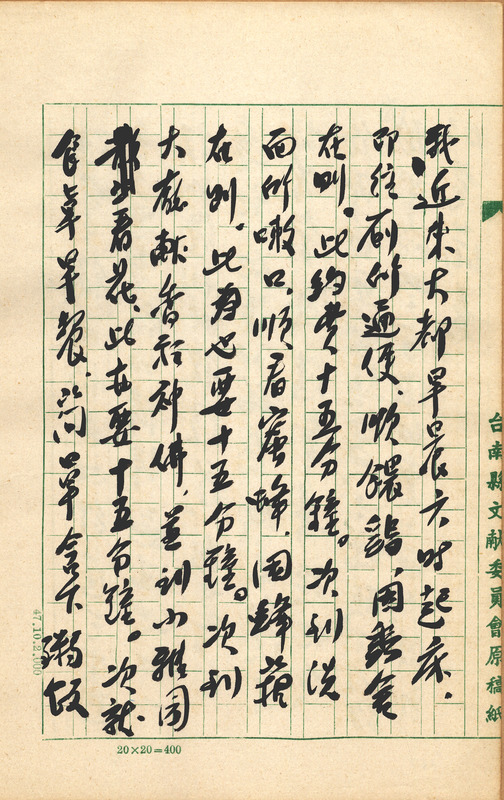 台南縣文献委員會原稿紙
我近來大都早晨六時起床，
即往廁所通便，順餵鷄，因鷄舍
在。此約費十五分鐘。次到洗
面所嗽口，順看蜜蜂，因蜂
在，此也要十五分鐘。次到
大廳獻香於神佛，並到小雅園
看花，此亦要十五分鐘。次就
食卓早餐，簡單食下粥飯
47.10.2,000
20×20=400